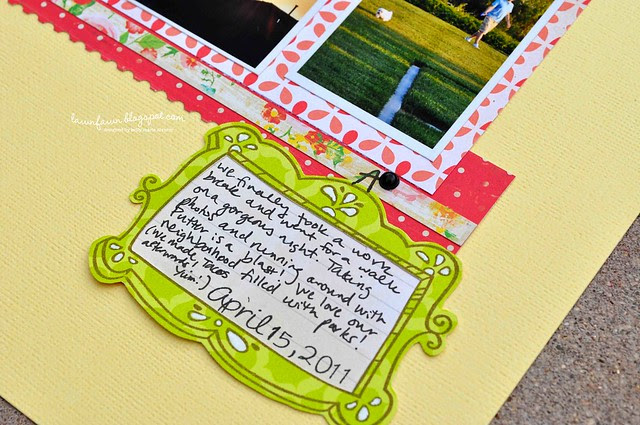 lawnfawn.blogspot.com
we finally took a work
break and went for a walk
on a gorgeous night. Taking
photos and running around with
Futter is a blast! We love our
neighborhood filled with parks!
(we made tacos
afterwards!
Yum!:)
April 15, 2011